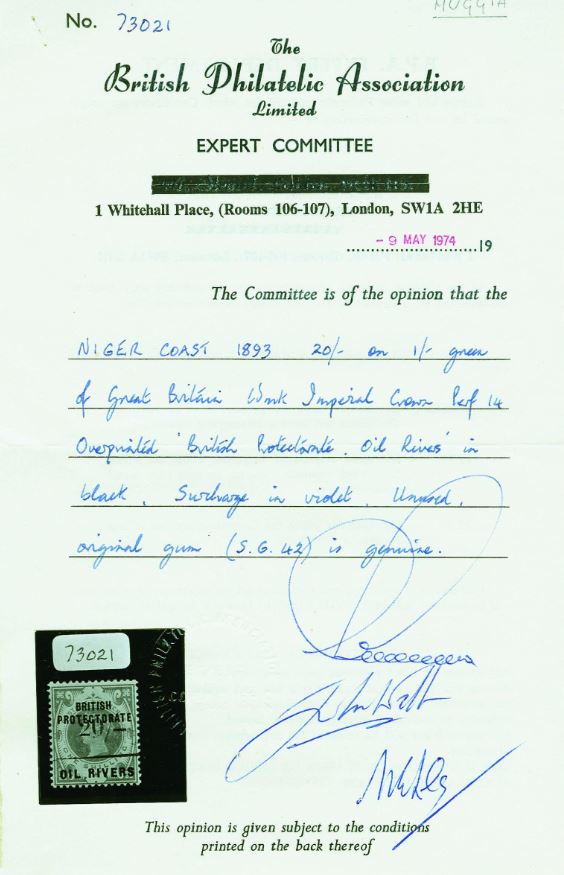 MUGGIA
No. 73021
The
British Philatelic Association
Limited
EXPERT COMMITTEE
1 Whitehall Place, (Rooms 106-107), London, SW1A 2HE
- 9 MAY 1974 19
The Committee is of the opinion that the
NIGER COAST 1893 20/- on 1/- green
of Great Britain Wmk Imperial Crown Perf 14
Overprinted 'British Protectorate. Oil Rivers' in
black. Surcharge in violet. Unused,
original gum (S.G. 42) is genuine.
73021
BRITISH
PROTECTORATE
20/-
OIL RIVERS
This opinion is given subject to the conditions
printed on the back thereof